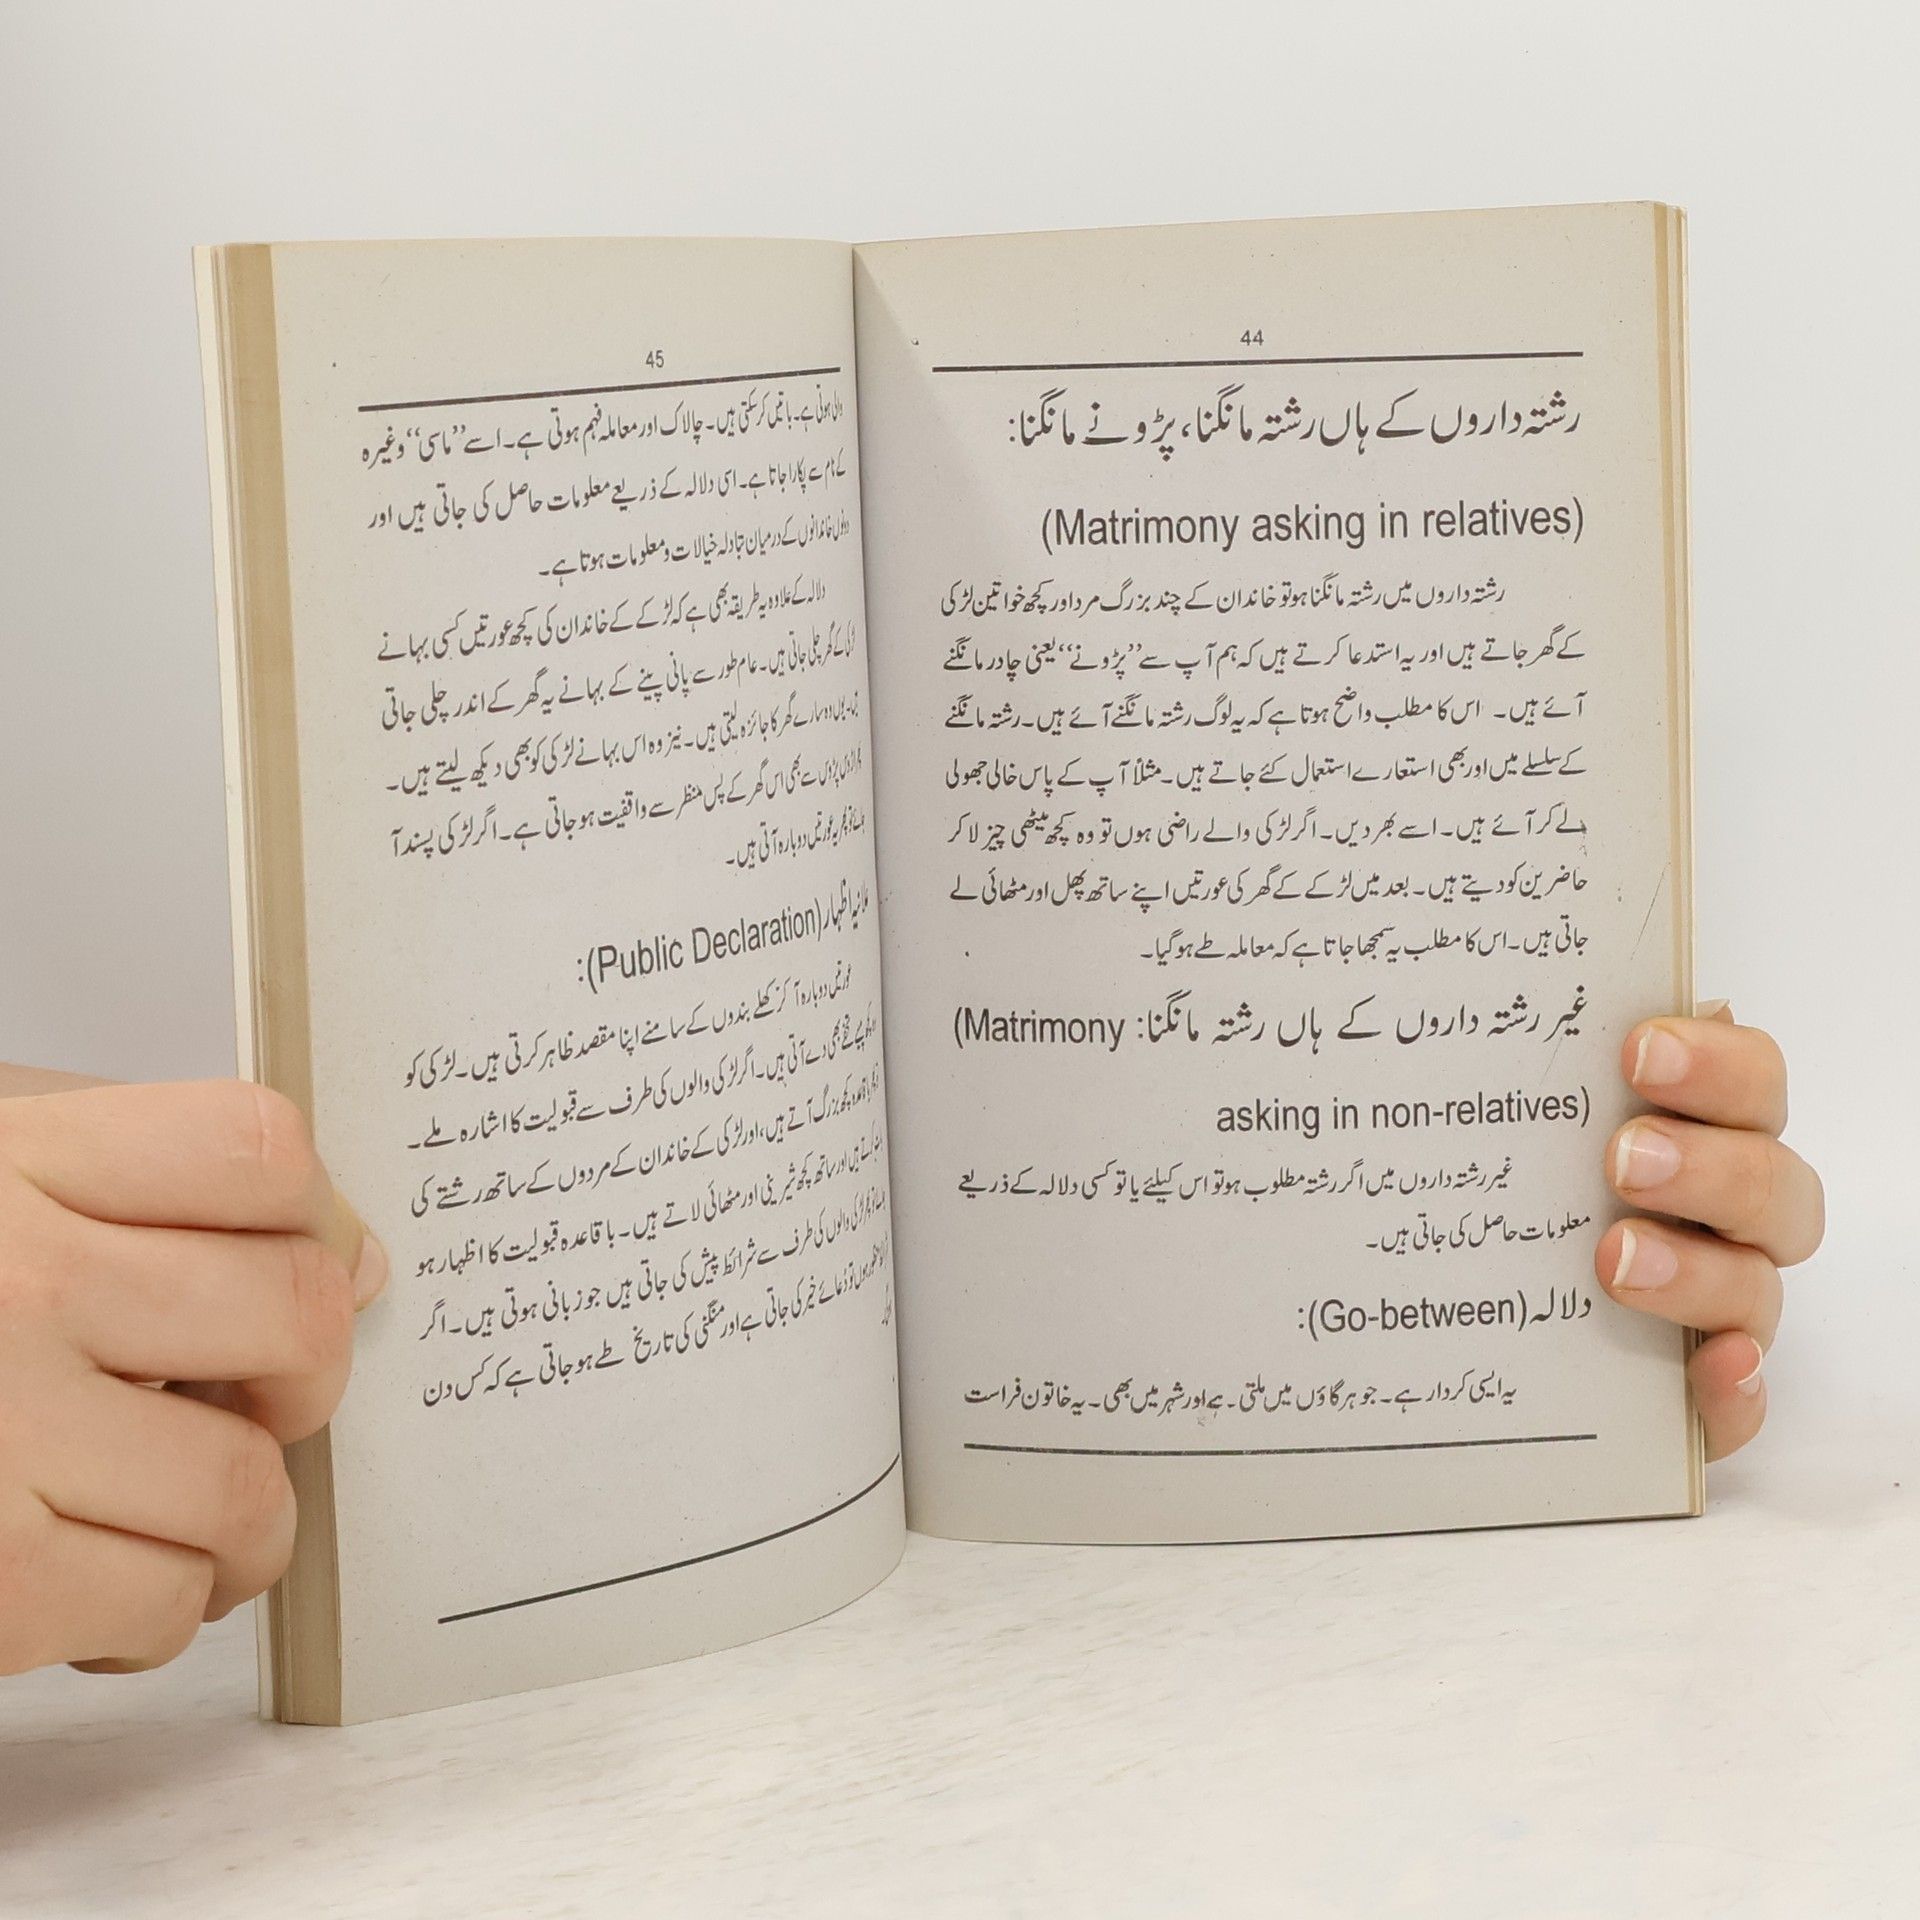 44
رشتہ داروں کے ہاں رشتہ مانگنا، پڑونے مانگنا:
(Matrimony asking in relatives)
رشتہ داروں میں رشتہ مانگنا ہو تو خاندان کے چند بزرگ مرد اور کچھ خواتین لڑکی
کے گھر جاتے ہیں اور یہ استدعا کرتے ہیں کہ ہم آپ سے ”پڑونے“ یعنی چادر مانگنے
آئے ہیں۔ اس کا مطلب واضح ہوتا ہے کہ یہ لوگ رشتہ مانگنے آئے ہیں۔ رشتہ مانگنے
کے سلسلے میں اور بھی استعارے استعمال کئے جاتے ہیں۔ مثلاً آپ کے پاس خالی جھولی
لے کر آئے ہیں۔ اسے بھر دیں۔ اگر لڑکی والے راضی ہوں تو وہ کچھ میٹھی چیز لا کر
حاضرین کو دیتے ہیں۔ بعد میں لڑکے کے گھر کی عورتیں اپنے ساتھ پھل اور مٹھائی لے
جاتی ہیں۔ اس کا مطلب یہ سمجھا جاتا ہے کہ معاملہ طے ہو گیا۔
غیر رشتہ داروں کے ہاں رشتہ مانگنا: (Matrimony
asking in non-relatives)
غیر رشتہ داروں میں اگر رشتہ مطلوب ہو تو اس کیلئے یا تو کسی دلالہ کے ذریعے
معلومات حاصل کی جاتی ہیں۔
دلالہ (Go-between):
یہ ایسی کردار ہے۔ جو ہر گاؤں میں ملتی۔ ہے اور شہر میں بھی۔ یہ خاتون فراست
45
والی ہوتی ہے۔ باتیں کر سکتی ہیں۔ چالاک اور معاملہ فہم ہوتی ہے۔ اسے ”ماسی“ وغیرہ
کے نام سے پکارا جاتا ہے۔ اسی دلالہ کے ذریعے معلومات حاصل کی جاتی ہیں اور
دونوں خاندانوں کے درمیان تبادلہ خیالات و معلومات ہوتا ہے۔
دلالہ کے علاوہ یہ طریقہ بھی ہے کہ لڑکے کے خاندان کی کچھ عورتیں کسی بہانے
لڑکی کے گھر چلی جاتی ہیں۔ عام طور سے پانی پینے کے بہانے یہ گھر کے اندر چلی جاتی
ہیں۔ یوں وہ سارے گھر کا جائزہ لیتی ہیں۔ نیز وہ اس بہانے لڑکی کو بھی دیکھ لیتے ہیں۔
پڑوس سے بھی اس گھر کے پس منظر سے واقفیت ہو جاتی ہے۔ اگر لڑکی پسند آ
جائے تو پھر یہ عورتیں دوبارہ آتی ہیں۔
علانیہ اظہار (Public Declaration):
عورتیں دوبارہ آ کر کھلے بندوں کے سامنے اپنا مقصد ظاہر کرتی ہیں۔ لڑکی کو
تحفے بھی دے آتی ہیں۔ اگر لڑکی والوں کی طرف سے قبولیت کا اشارہ ملے۔
کچھ بزرگ آتے ہیں، اور لڑکی کے خاندان کے مردوں کے ساتھ رشتے کی
بات کرتے ہیں اور ساتھ کچھ شیرینی اور مٹھائی لاتے ہیں۔ باقاعدہ قبولیت کا اظہار ہو
لڑکی والوں کی طرف سے شرائط پیش کی جاتی ہیں جو زبانی ہوتی ہیں۔ اگر
منظور ہوں تو دُعائے خیر کی جاتی ہے اور منگنی کی تاریخ طے ہو جاتی ہے کہ کس دن